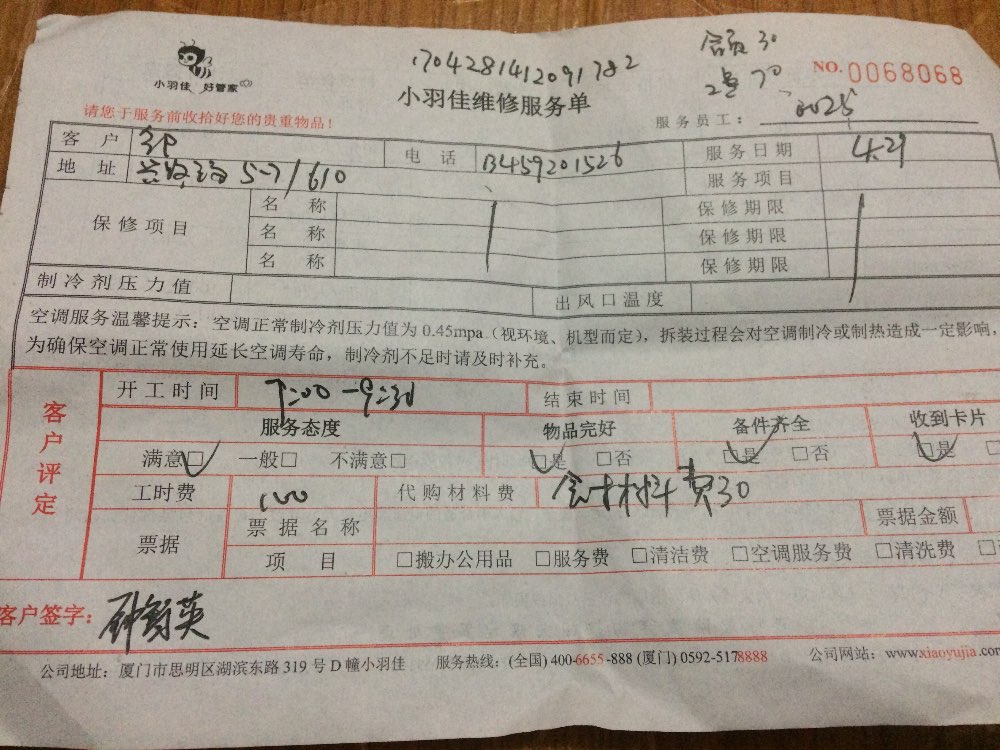 小羽佳 好管家
1704281412091782
含员 30
NO. 0068068
小羽佳维修服务单
请您于服务前收拾好您的贵重物品！
服务员工： 6025
客 户 电 话 13459201526 服务日期 4.29
地 址 5-7/610 服务项目
保修项目 名 称 保修期限
名 称 保修期限
名 称 保修期限
制冷剂压力值 出风口温度
空调服务温馨提示：空调正常制冷剂压力值为 0.45mpa（视环境、机型而定），拆装过程会对空调制冷或制热造成一定影响，
为确保空调正常使用延长空调寿命，制冷剂不足时请及时补充。
客户评定
开工时间 9:30 结束时间
服务态度 物品完好 备件齐全 收到卡片
满意□ 一般□ 不满意□ □是 □否 □是 □否 □是
工时费 100 代购材料费 含材料费30
票据 票据名称 票据金额
项 目 □搬办公用品 □服务费 □清洁费 □空调服务费 □清洗费
客户签字：
公司地址：厦门市思明区湖滨东路 319 号 D 幢小羽佳 服务热线：(全国) 400-6655-888 (厦门) 0592-5178888 公司网站：www.xiaoyujia.com